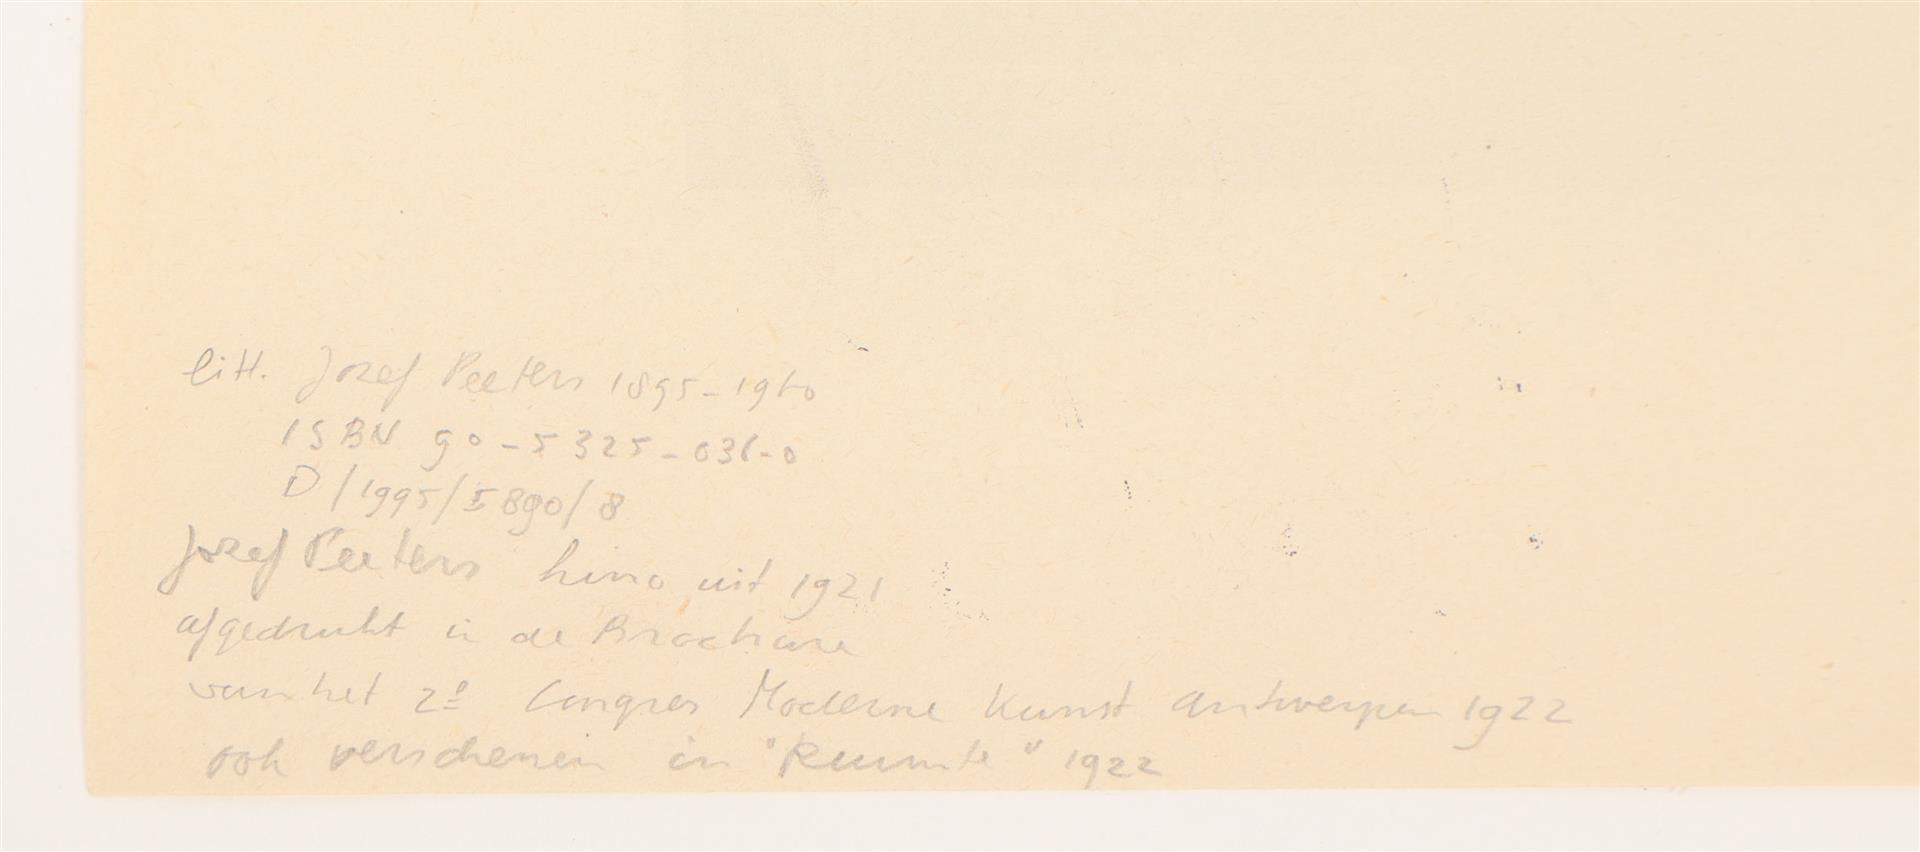 litt. Jozef Peeters 1895-1960
ISBN 90-5325-031-0
D/1995/5890/8
Jozef Peeters Lino uit 1921
afgedrukt in de Brochure
van het 2e Congres Moderne Kunst Antwerpen 1922
ook verschenen in "Ruimte" 1922